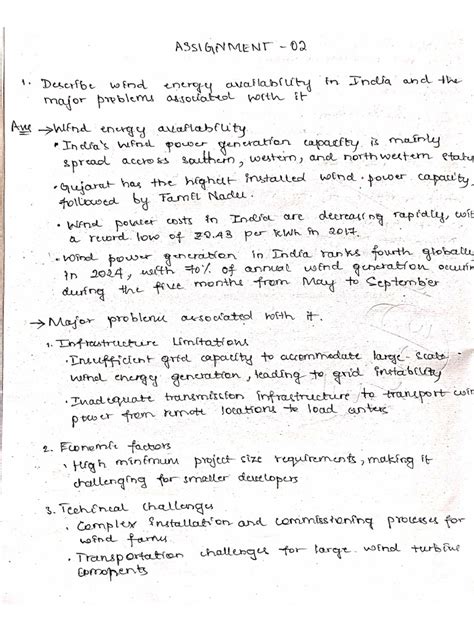 ASSIGNMENT - 02
1. Describe wind energy availability in India and the
major problems associated with it
Ans → Wind energy availability
• India's wind power generation capacity is mainly
spread accross southern, western, and northwestern state
• Gujarat has the highest installed wind power capacity,
followed by Tamil Nadu.
• Wind power costs in India are decreasing rapidly, wit
a record low of ₹2.43 per kWh in 2017.
• Wind power generation in India ranks fourth globally
in 2024, with 70% of annual wind generation occurin
during the five months from May to September
→ Major problems associated with it.
1. Infrastructure limitations
• Insufficient grid capacity to accommodate large-scale
wind energy generation, leading to grid instability
• Inadequate transmission infrastructure to transport win
power from remote locations to load centers
2. Economic factors
• High minimum project size requirements, making it
challenging for smaller developers
3. Techincal challenges
• Complex installation and commissioning processes for
wind farms
• Transportation challenges for large wind turbine
components